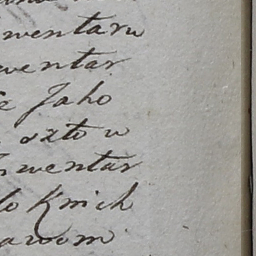 wentaru
wentar
Jako
szto w
Inwentar
do Knich
awom